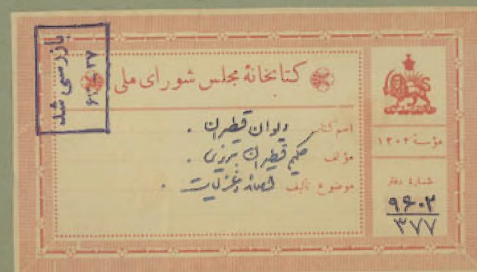 کتابخانهٔ مجلس شورای ملی
اسم کتاب دیوان قطران .
مؤلف حکیم قطران تبریزی .
موضوع تألیف قصائد و غزلیات .
مؤسسهٔ ۱۳۰۲
شمارهٔ دفتر
۹۶۰۲
۳۷۷
بازرسی شد